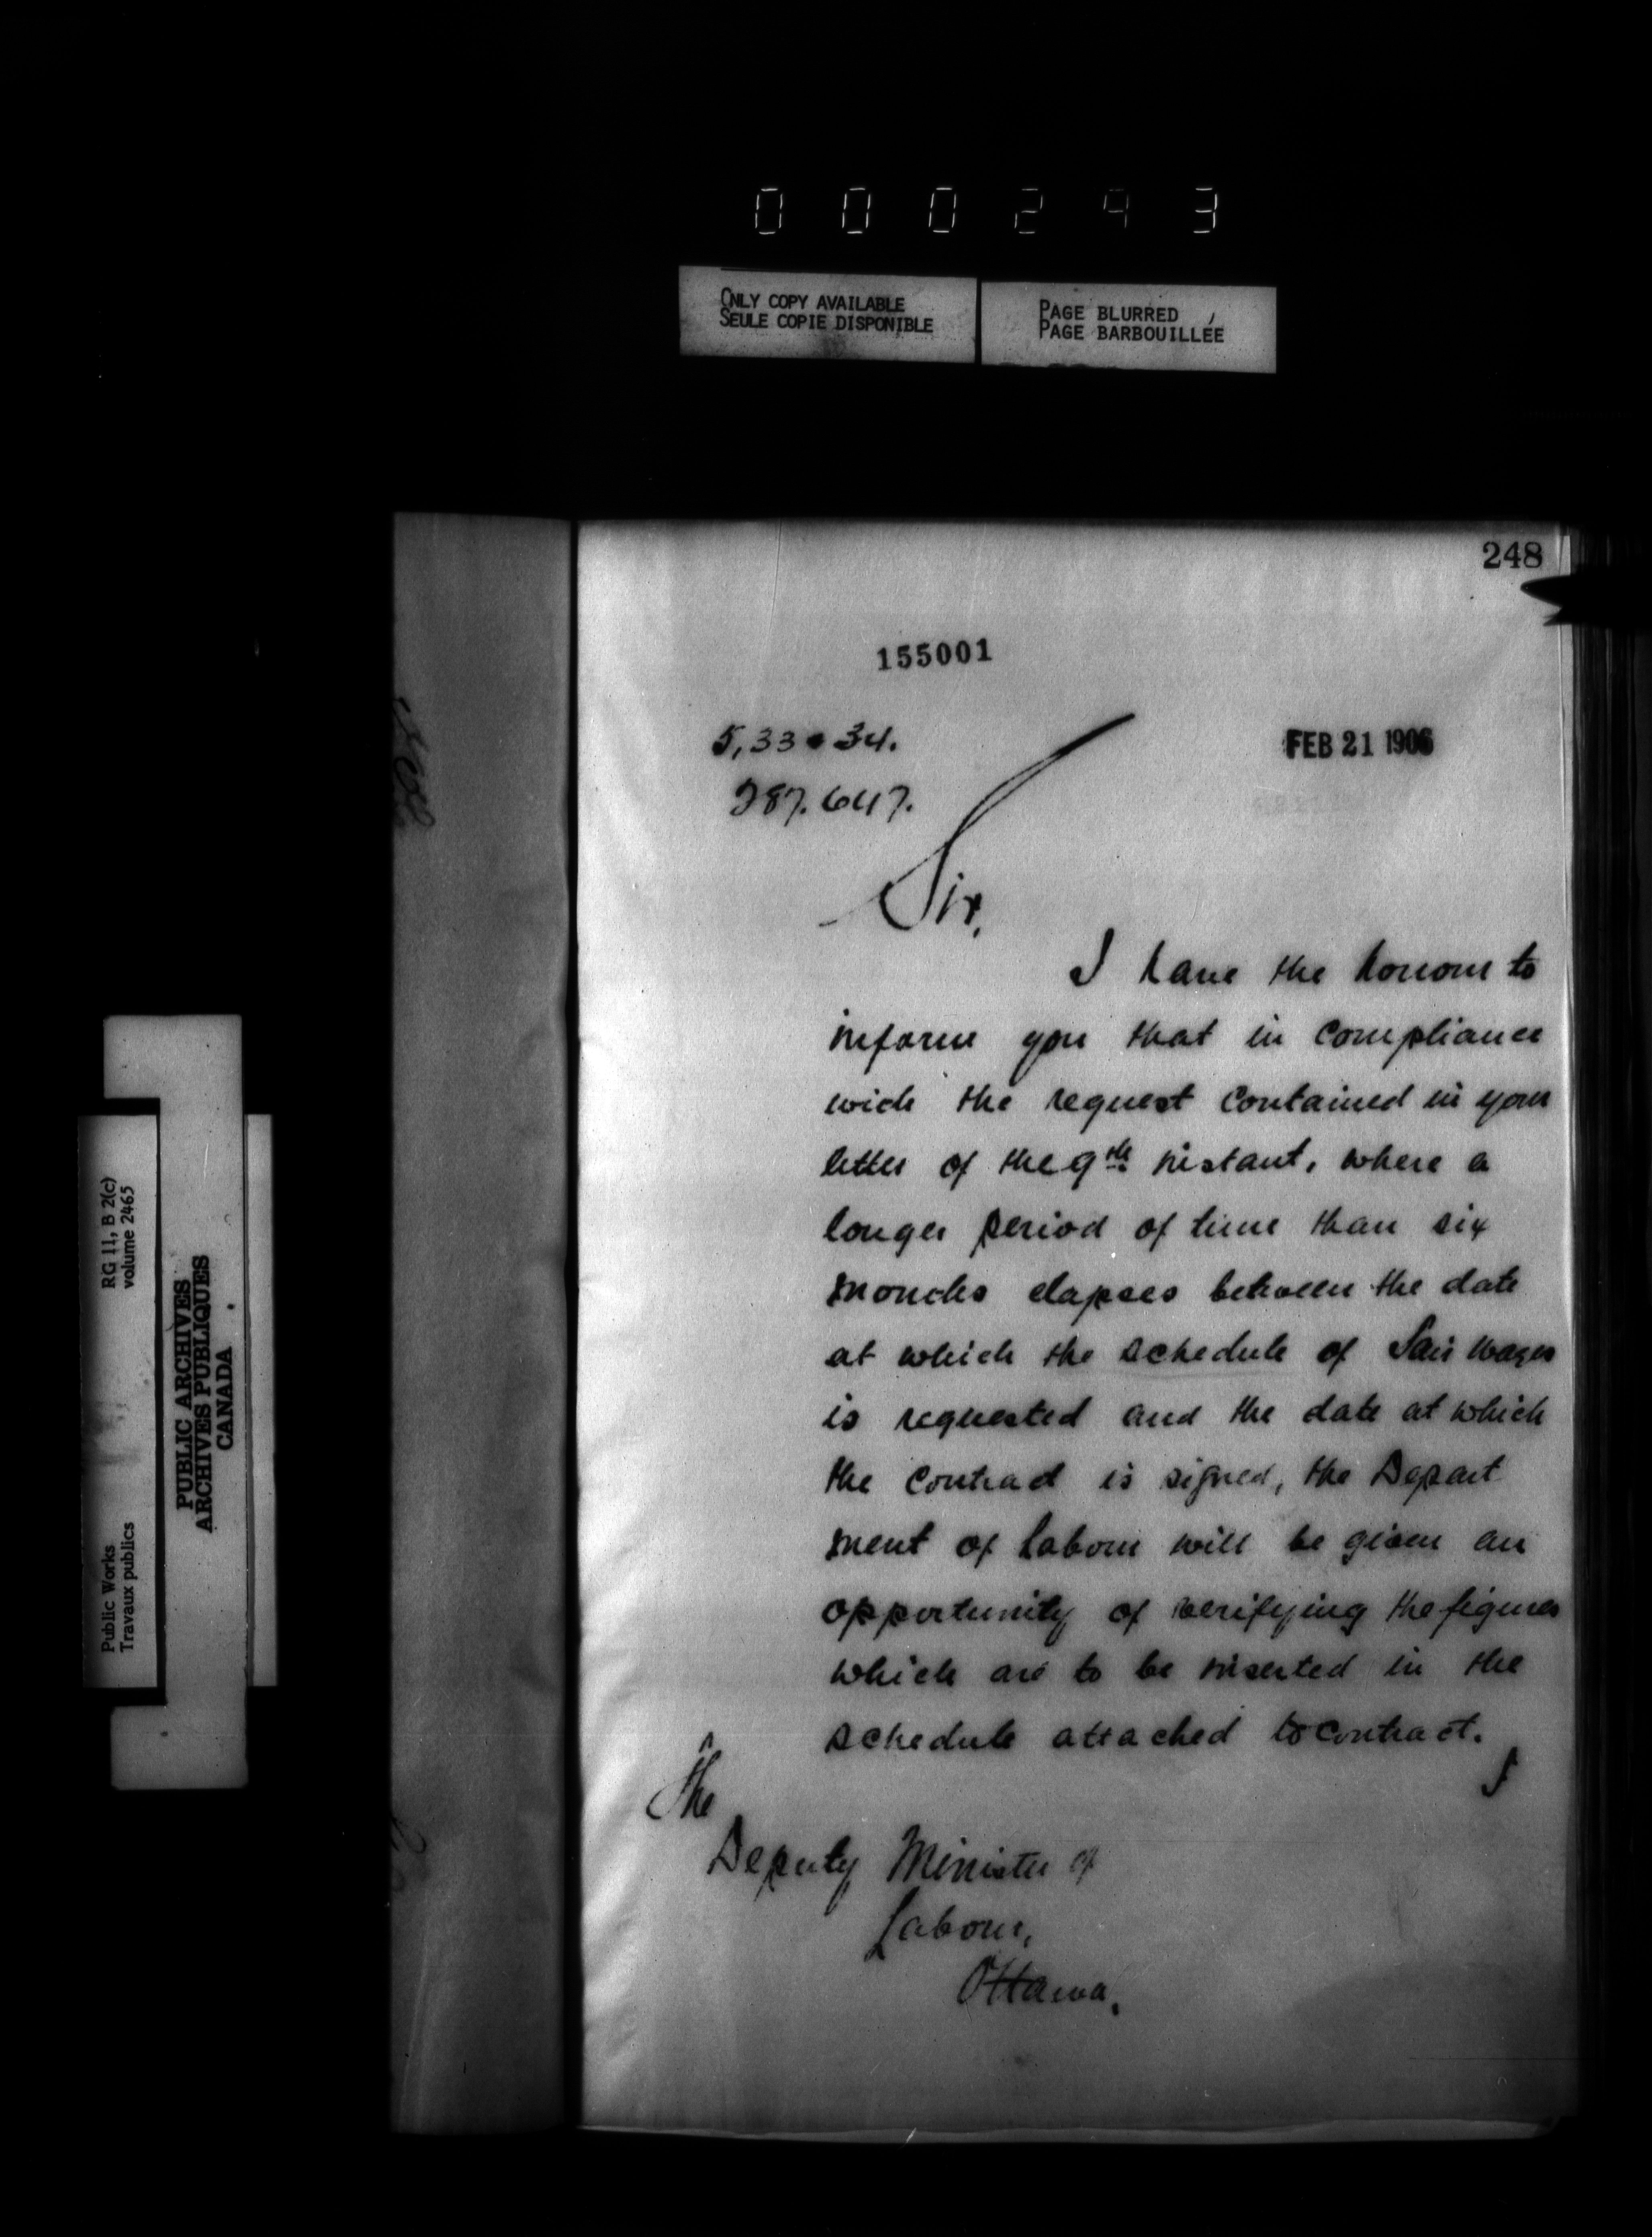 000293
ONLY COPY AVAILABLE
SEULE COPIE DISPONIBLE
PAGE BLURRED
PAGE BARBOUILLÉE
248
155001
FEB 21 1906
287.647.
Sir,
I have the honour to
inform you that in compliance
with the request contained in your
letter of the 9th instant, where a
longer period of time than six
months elapses between the date
at which the schedule of Fair Wages
is requested and the date at which
the contract is signed, the Depart
ment of Labour will be given an
opportunity of verifying the figures
which are to be inserted in the
schedule attached to contract.
I
The
Deputy Minister of
Labour,
Ottawa.
RG 11, B 2(c)
volume 2465
Public Works
Travaux publics
PUBLIC ARCHIVES
ARCHIVES PUBLIQUES
CANADA